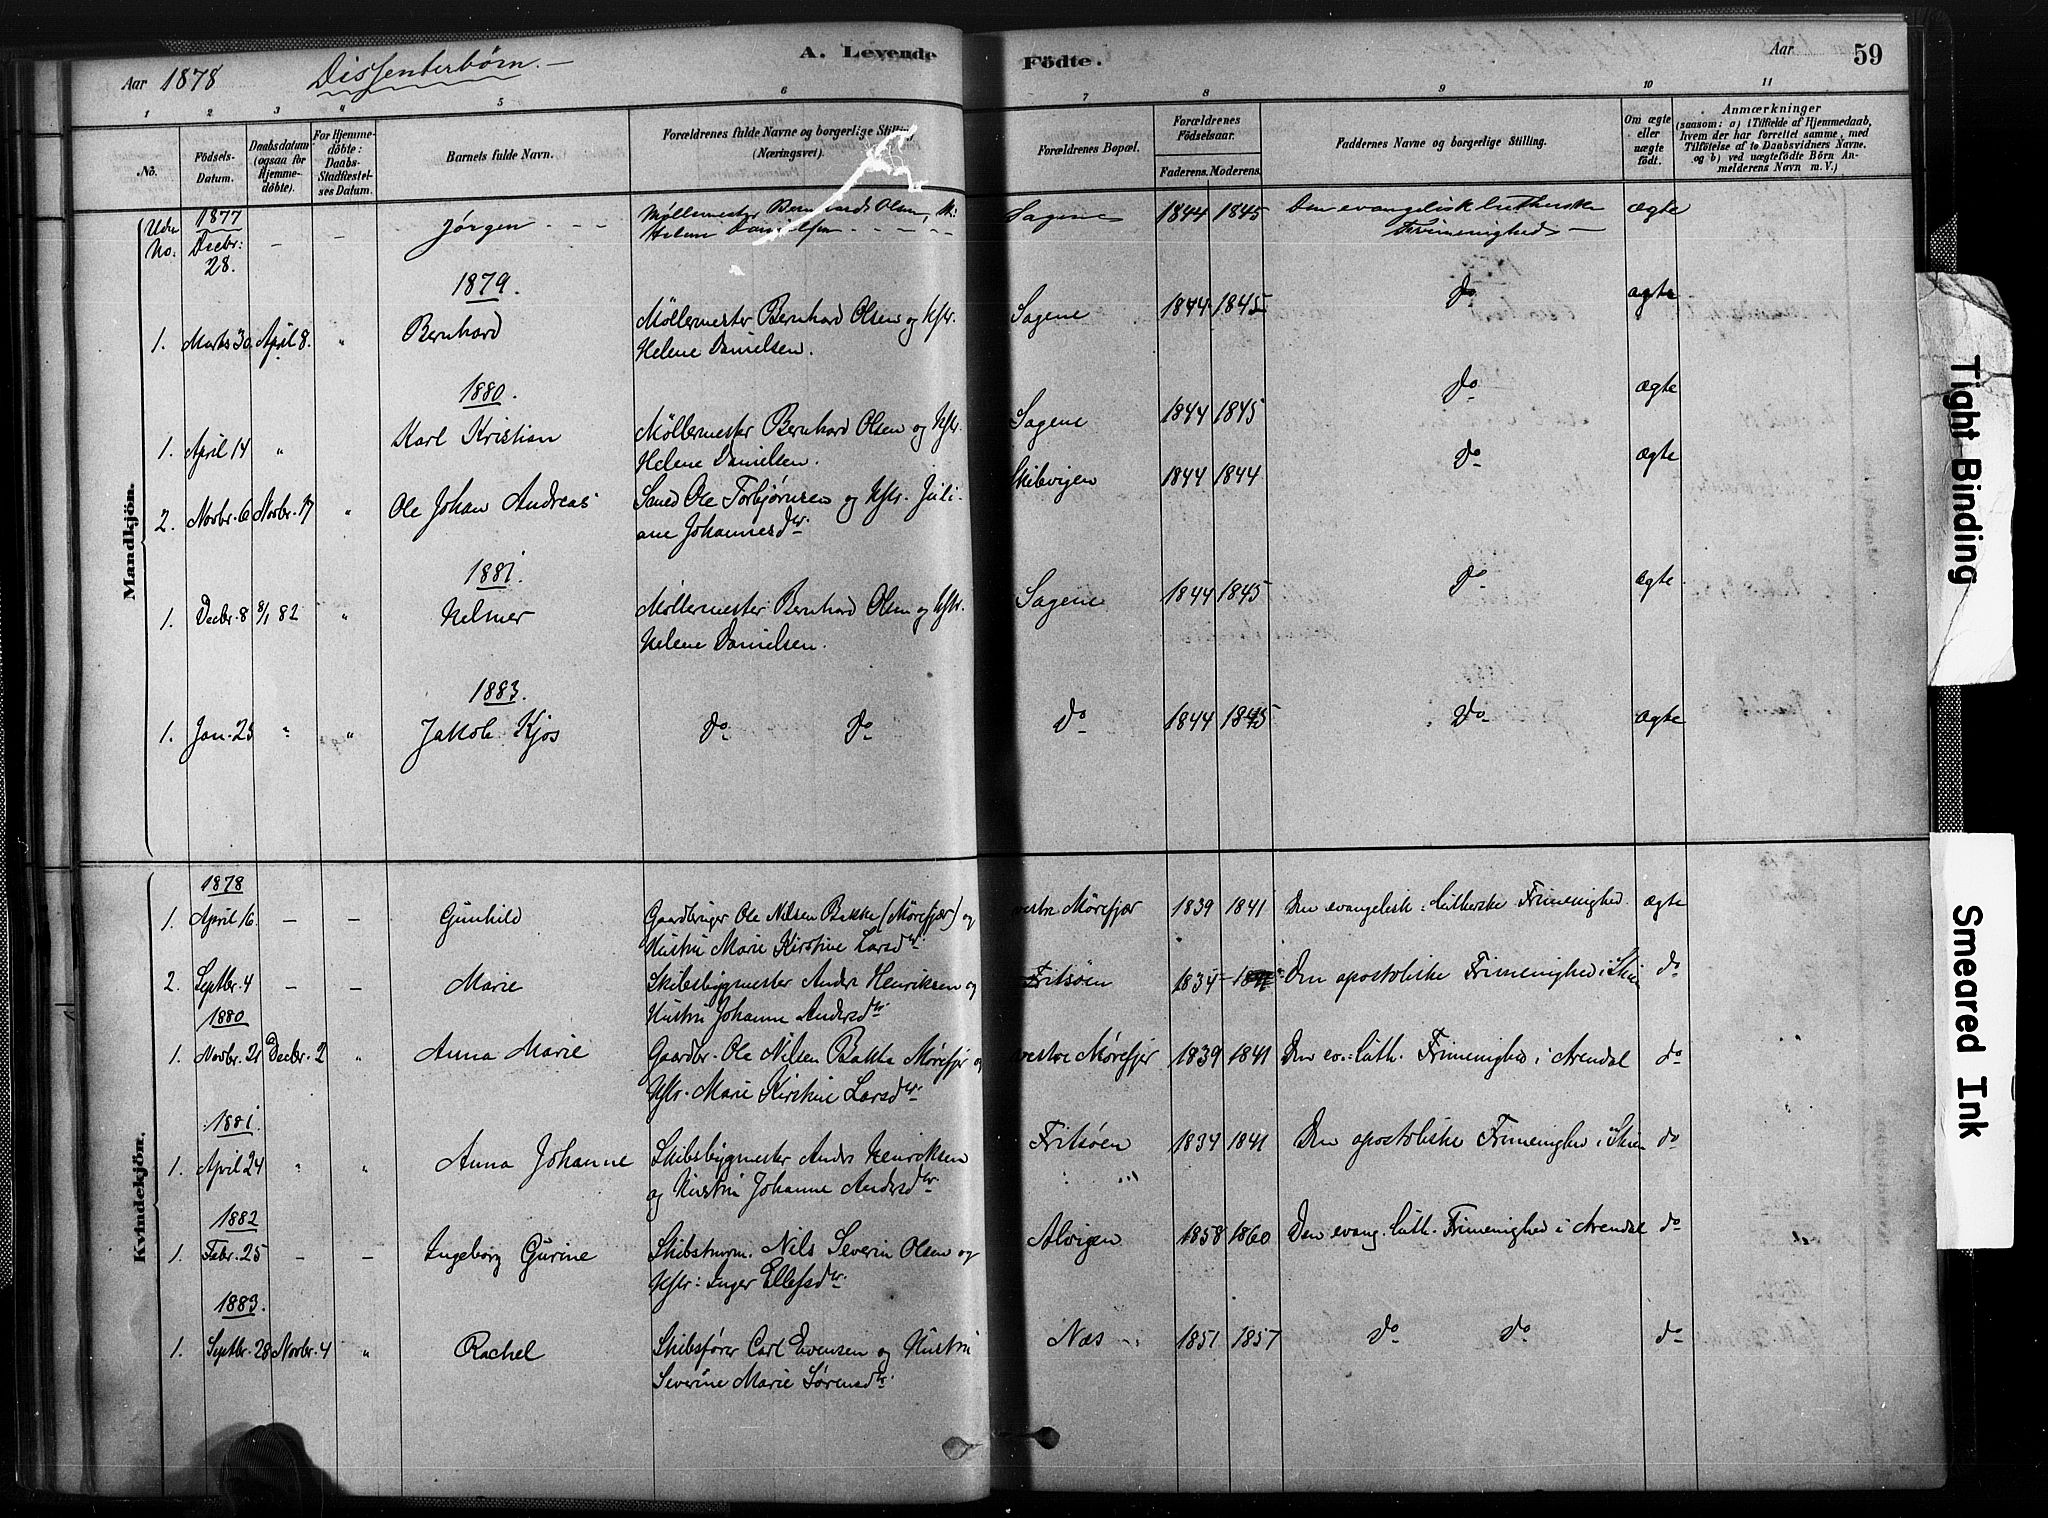 Aar 1878 Dissenterbörn. —
A. Levende Födte.
Aar 59
1 2 3 4 5 6 7 8 9 10 11
No.
Födsels-Datum.
Daabsdatum (ogsaa for Hjemmedöbte).
For Hjemmedöbte: Daabs-Stadfæstelses Datum.
Barnets fulde Navn.
Forældrenes fulde Navne og borgerlige Stilling (Næringsvei).
Forældrenes Bopæl.
Forældrenes Födselsaar.
Faderens. Moderens.
Faddernes Navne og borgerlige Stilling.
Om ægte eller uægte födt.
Anmærkninger
(saasom: a) i Tilfælde af Hjemmedaab, hvem der har forrettet samme, med Tilföielse af to Daabsvidners Navne, og b) ved uægtefödte Börn Anmelderens Navn m. V.)
Mandkjön.
1877
Uden No. Decbr. 28. — — Jørgen - - - Møllemester Bernhard Olsen, H: Sagene 1844 1845 Den evangelisk lutherske ægte
Helene Danielsen - - - - - Frimenighed —
1879.
1. Marts 30 April 8. " Bernhard Møllermester Bernhard Olsen og Hstr. Sagene 1844 1845 do ægte
Helene Danielsen.
1880.
1. April 14 " Karl Kristian Møllermester Bernhard Olsen og Hstr. Sagene 1844 1845 do ægte
Helene Danielsen.
2. Novbr. 6 Novbr. 17 " Ole Johan Andreas Smed Ole Torbjørnsen og Hstr. Juli- Skibvigen 1844 1844 do ægte
ane Johannesdtr.
1881.
1. Decbr. 8 8/1 82 " Helmer Møllermester Bernhard Olsen og Hstr. Sagene 1844 1845 do ægte
Helene Danielsen.
1883.
1. Jan. 25 " " Jakob Kjos do do do 1844 1845 do ægte
Kvindekjön.
1878
1. April 16 — — Gunhild Gaardbruger Ole Nilsen Bakke (Mörefjær) og vestre Mörefjær 1839 1841 Den evangelisk-lutherske Frimenighed. ægte
Hustru Marie Kirstine Larsdtr.
2. Septbr. 4 — — Marie Skibsbygmester Anders Henriksen og Fritsöen 1834 Den apostoliske Frimenighed i Skien do
Hustru Johanne Andersdtr.
1880
1. Novbr. 21 Decbr. 2 " Anna Marie Gaardbr. Ole Nilsen Bakke Mörefjr og vestre Mörefjer 1839 1841 Den ev.-luth. Frimenighed i Arendal do
Hstr. Marie Kirstine Larsdtr.
1881.
1. April 24 " " Anna Johanne Skibsbygmester Andrs Henriksen Fritsöen 1834 1841 Den apostoliske Frimenighed i Skien do
og Hustru Johanne Andersdtr.
1882
1. Febr. 25 — — Ingeborg Gurine Skibstmrm. Nils Severin Olsen og Alvigen 1858 1860 Den evang. luth. Frimenighed i Arendal do
Hstr: Inger Ellefsdtr.
1883.
1. Septbr. 28 Novbr. 4 " Rachel Skibsfører Carl Evensen og Hustru Næs 1851 1857 do do do
Severine Marie Sörensdtr.
Tight Binding
Smeared Ink